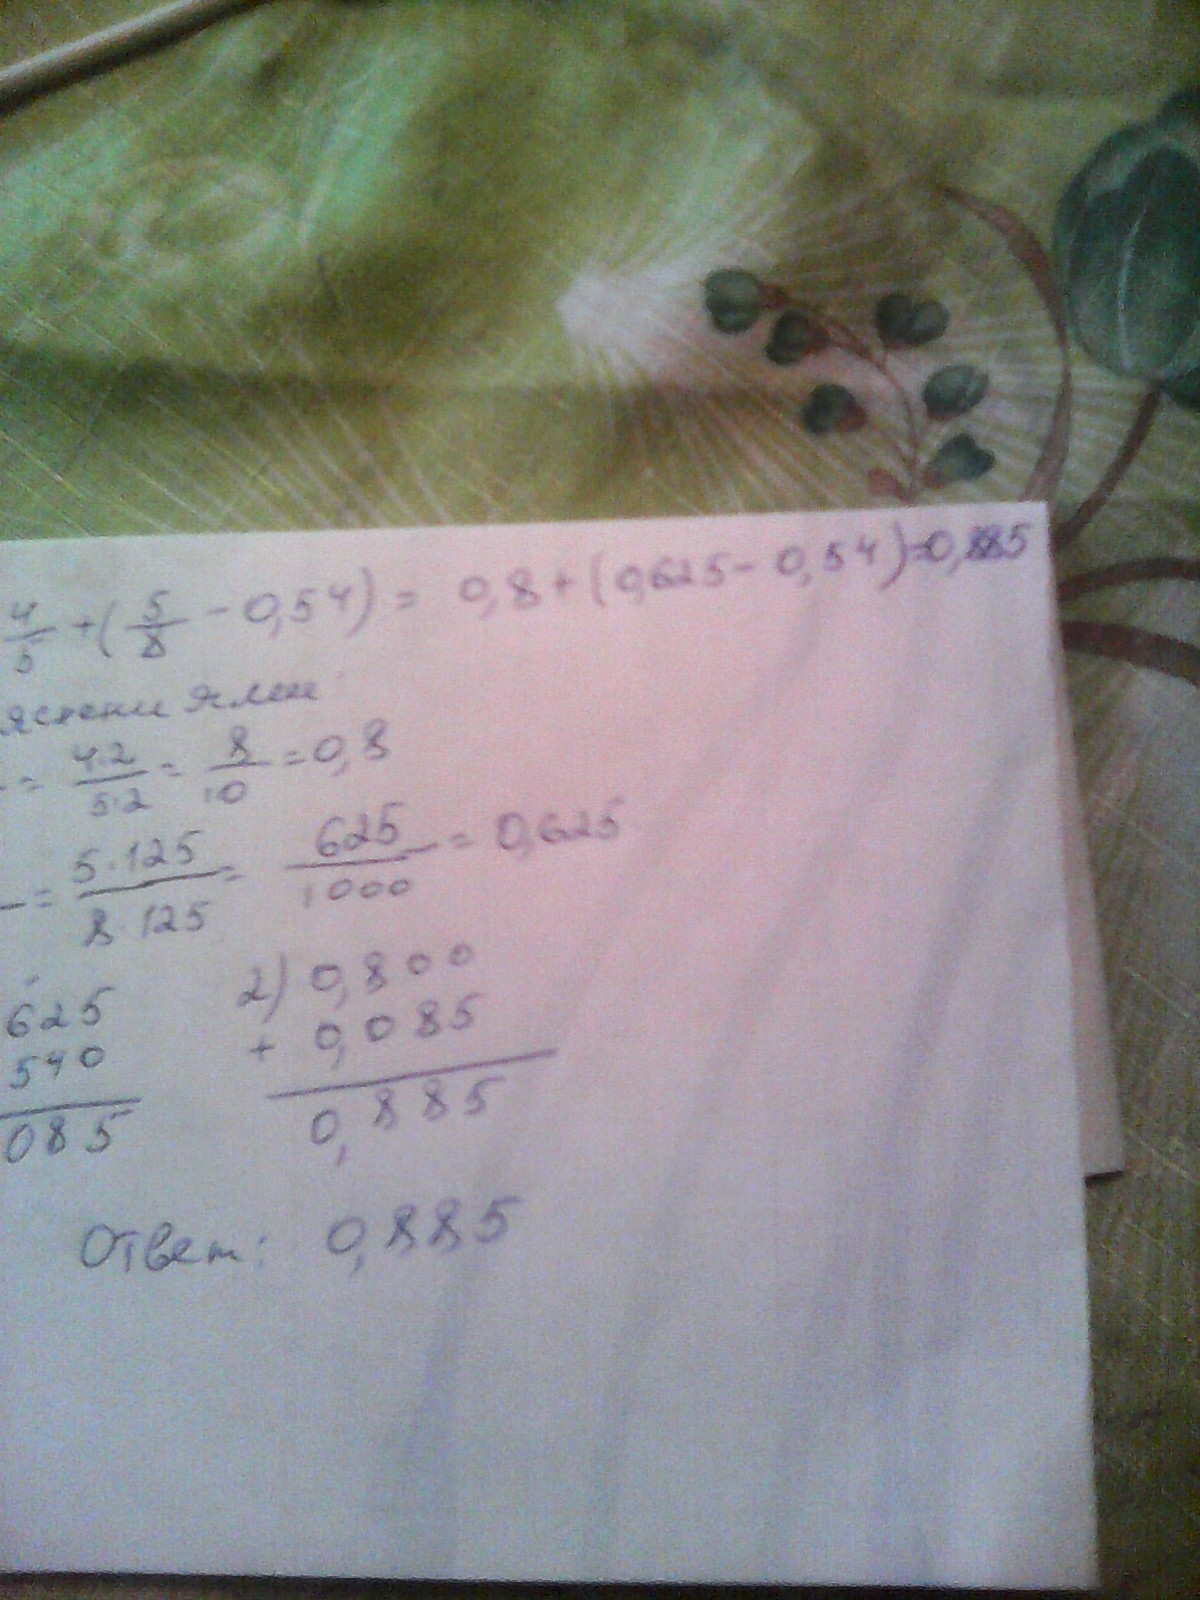 4/5 + (5/8 - 0,54) = 0,8 + (0,625 - 0,54) = 0,885
= 4·2/5·2 = 8/10 = 0,8
= 5·125/8·125 = 625/1000 = 0,625
625
540
085
2) 0,800
+ 0,085
0,885
Ответ: 0,885